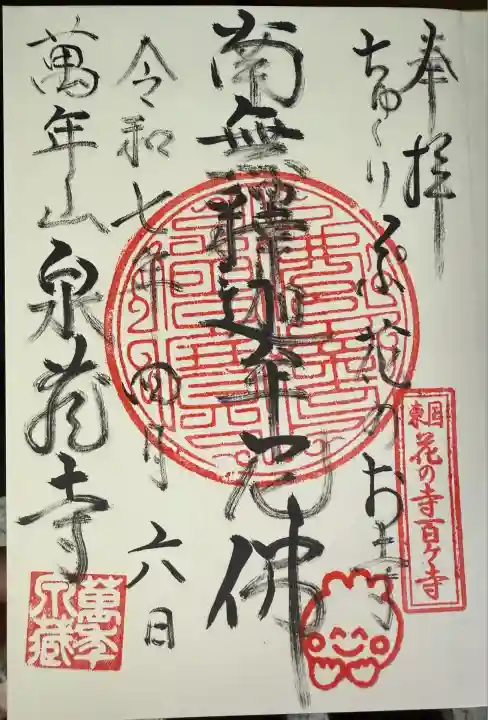 奉拝
ちゅーりっぷ花のお寺
東国花の寺百ヶ寺
南無釋迦牟尼佛
令和七年四月六日
萬年山泉蔵寺